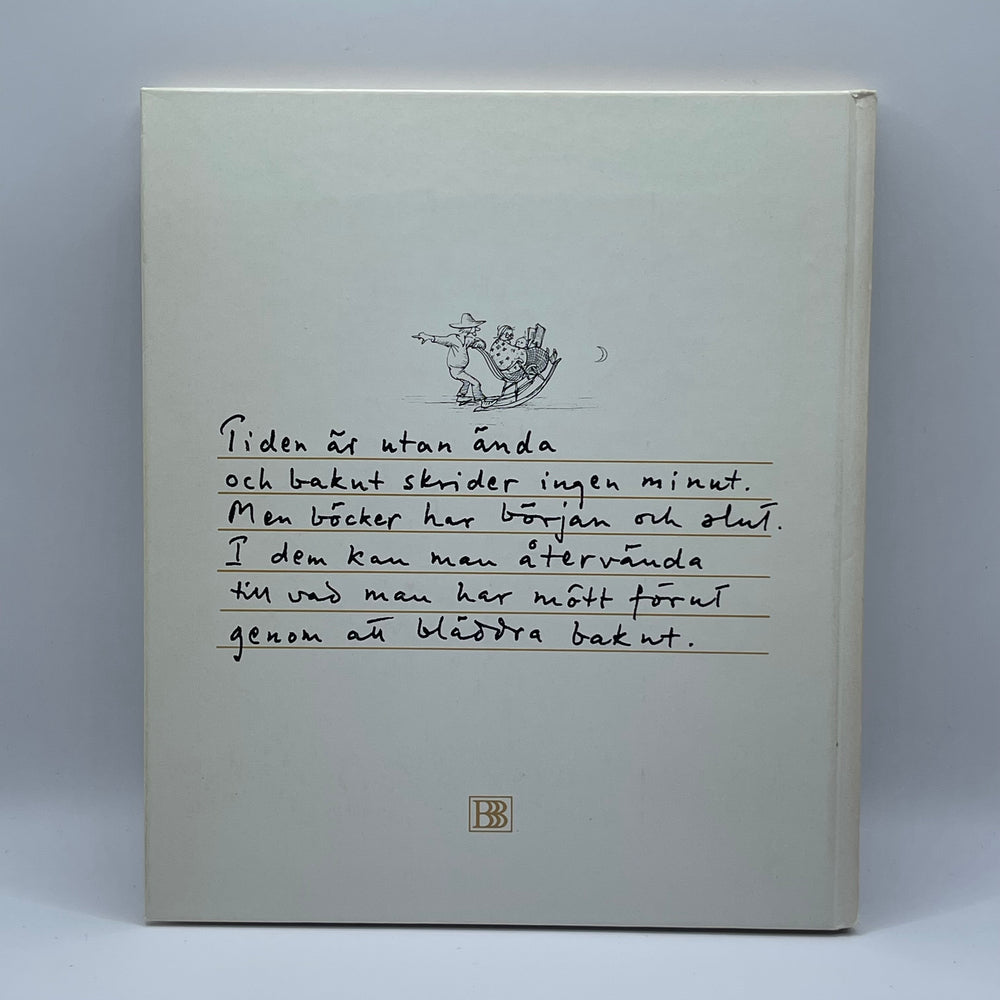 Tiden är utan ända
och bakut skrider ingen minut.
Men böcker har början och slut.
I dem kan man återvända
till vad man har mött förut
genom att bläddra bakut.
BBB